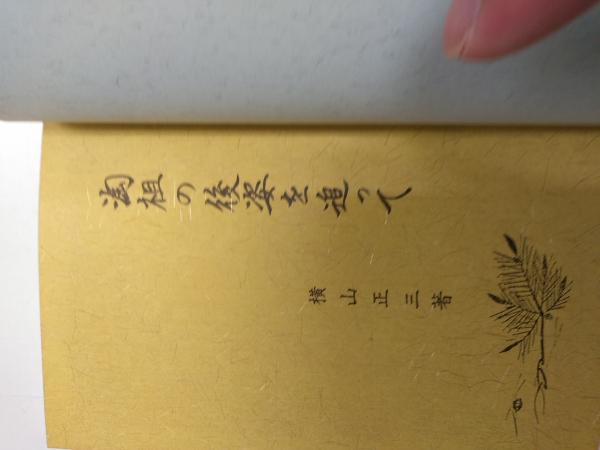 淘祖の後姿を追って
横山正三著